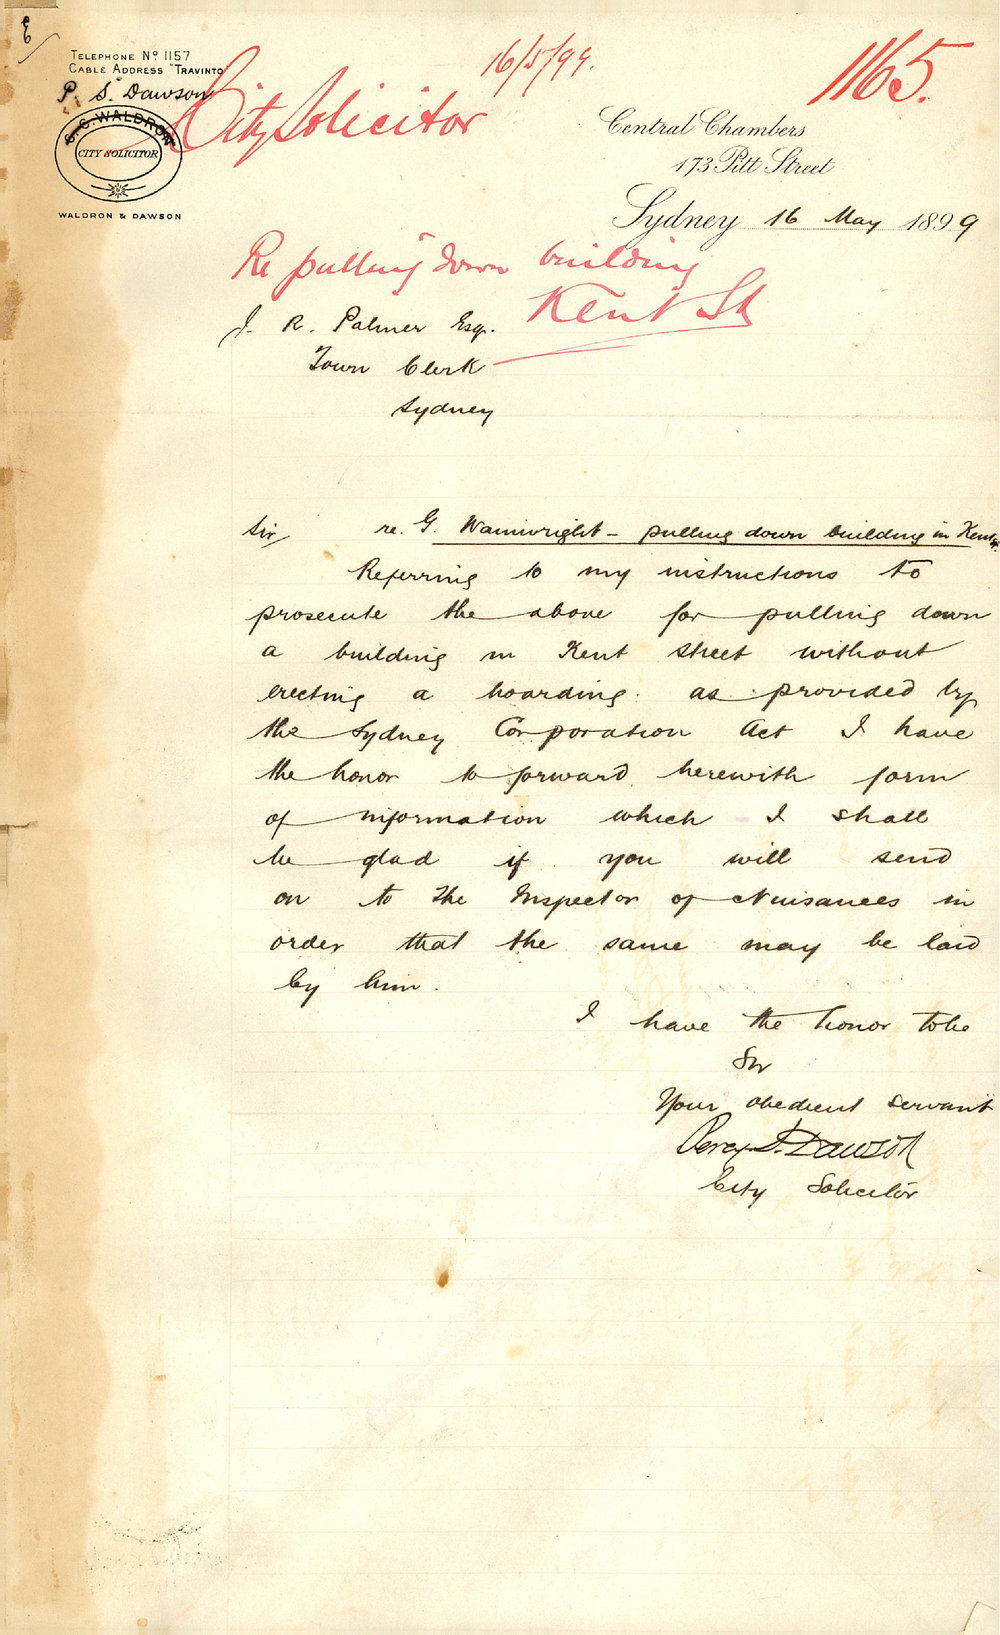 Telephone No 1157
Cable Address "Travinto"
P. S. Dawson
S. C. WALDRON
CITY SOLICITOR
WALDRON & DAWSON
City Solicitor
16/5/99.
1165.
Central Chambers
173 Pitt Street
Sydney 16 May 1899
Re pulling down building
Kent St
J. R. Palmer Esq.
Town Clerk
Sydney
Sir/ re. G. Wainwright - pulling down building in Kent St.
Referring to my instructions to
prosecute the above for pulling down
a building in Kent Street without
erecting a hoarding as provided by
the Sydney Corporation Act I have
the honor to forward herewith form
of information which I shall
be glad if you will send
on to the Inspector of Nuisances in
order that the same may be laid
by him.
I have the honor to be
Sir
Your obedient servant
Percy S. Dawson
City Solicitor